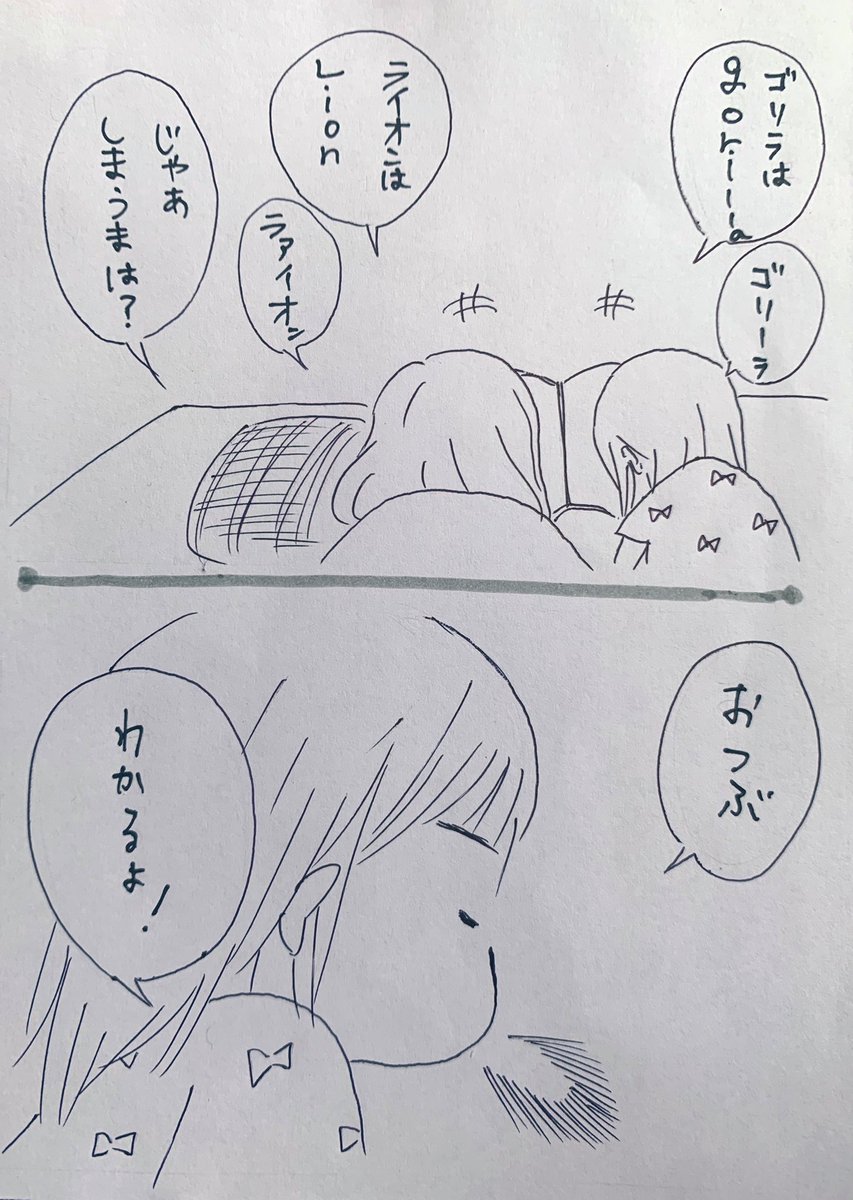 ゴリラは
gorilla
ゴリーラ
ライオンは
Lion
ラァイオン
じゃあ
しまうまは?
おつぶ
わかるよ!